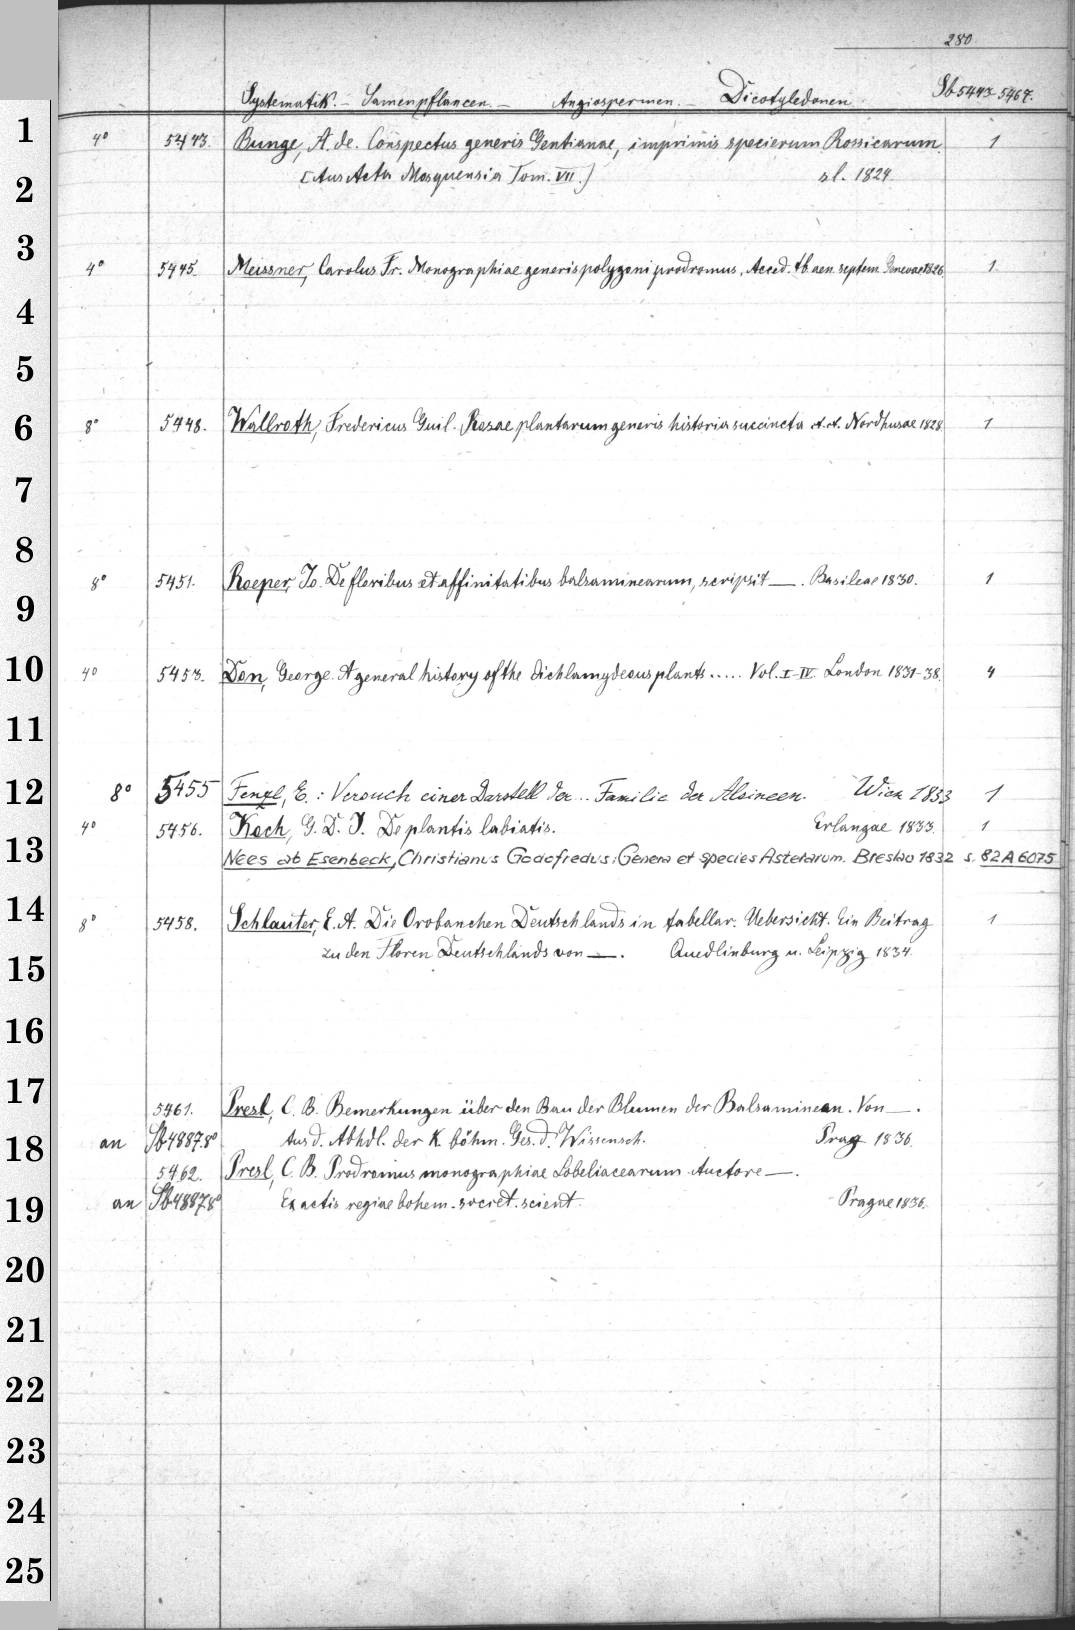 280
Systematik. – Samenpflanzen. – Angiospermen. – Dicotyledonen. Sb 5443-5467.
1
4° 5443. Bunge, A. de. Conspectus generis Gentianae, imprimis specierum Rossicarum. 1
2
[Aus Acta Mosquensia Tom. VII.] sl. 1824.
3
4° 5445. Meissner, Carolus Fr. Monographiae generis polygoni prodromus. Acced. tb. aen. septem. Genevae 1826 1.
4
5
6
8° 5448. Wallroth, Fredericus Guil. Rosae plantarum generis historia succincta Nordhusae 1828. 1
7
8
8° 5451. Roeper, Jo. De floribus et affinitatibus balsaminearum, scripsit —. Basileae 1830. 1
9
10
4° 5453. Don, George. A general history of the dichlamydeous plants..... Vol. I-IV. London 1831-38. 4
11
12
8° 5455 Fenzl, E.: Versuch einer Darstell der .. Familie der Alsineen. Wien 1833 1
4° 5456. Koch, G. D. J. De plantis labiatis. Erlangae 1833. 1
13
Nees ab Esenbeck, Christianus Godofredus: Genera et species Asterarum. Breslau 1832 s. 82 A 6075
14
8° 5458. Schlauter, E. A. Die Orobanchen Deutschlands in tabellar. Uebersicht. Ein Beitrag 1
15
zu den Floren Deutschlands von —. Quedlinburg u. Leipzig 1834.
16
17
5461. Presl, C. B. Bemerkungen über den Bau der Blumen der Balsamineen. Von —.
18
an Sb 4887.8° Aus d. Abhdl. der K. böhm. Ges. d. Wissensch. Prag 1836.
5462. Presl, C. B. Prodromus monographiae Lobeliacearum Auctore —.
19
an Sb 4887.8° Ex actis regiae bohem. societ. scient. Pragae 1836.
20
21
22
23
24
25